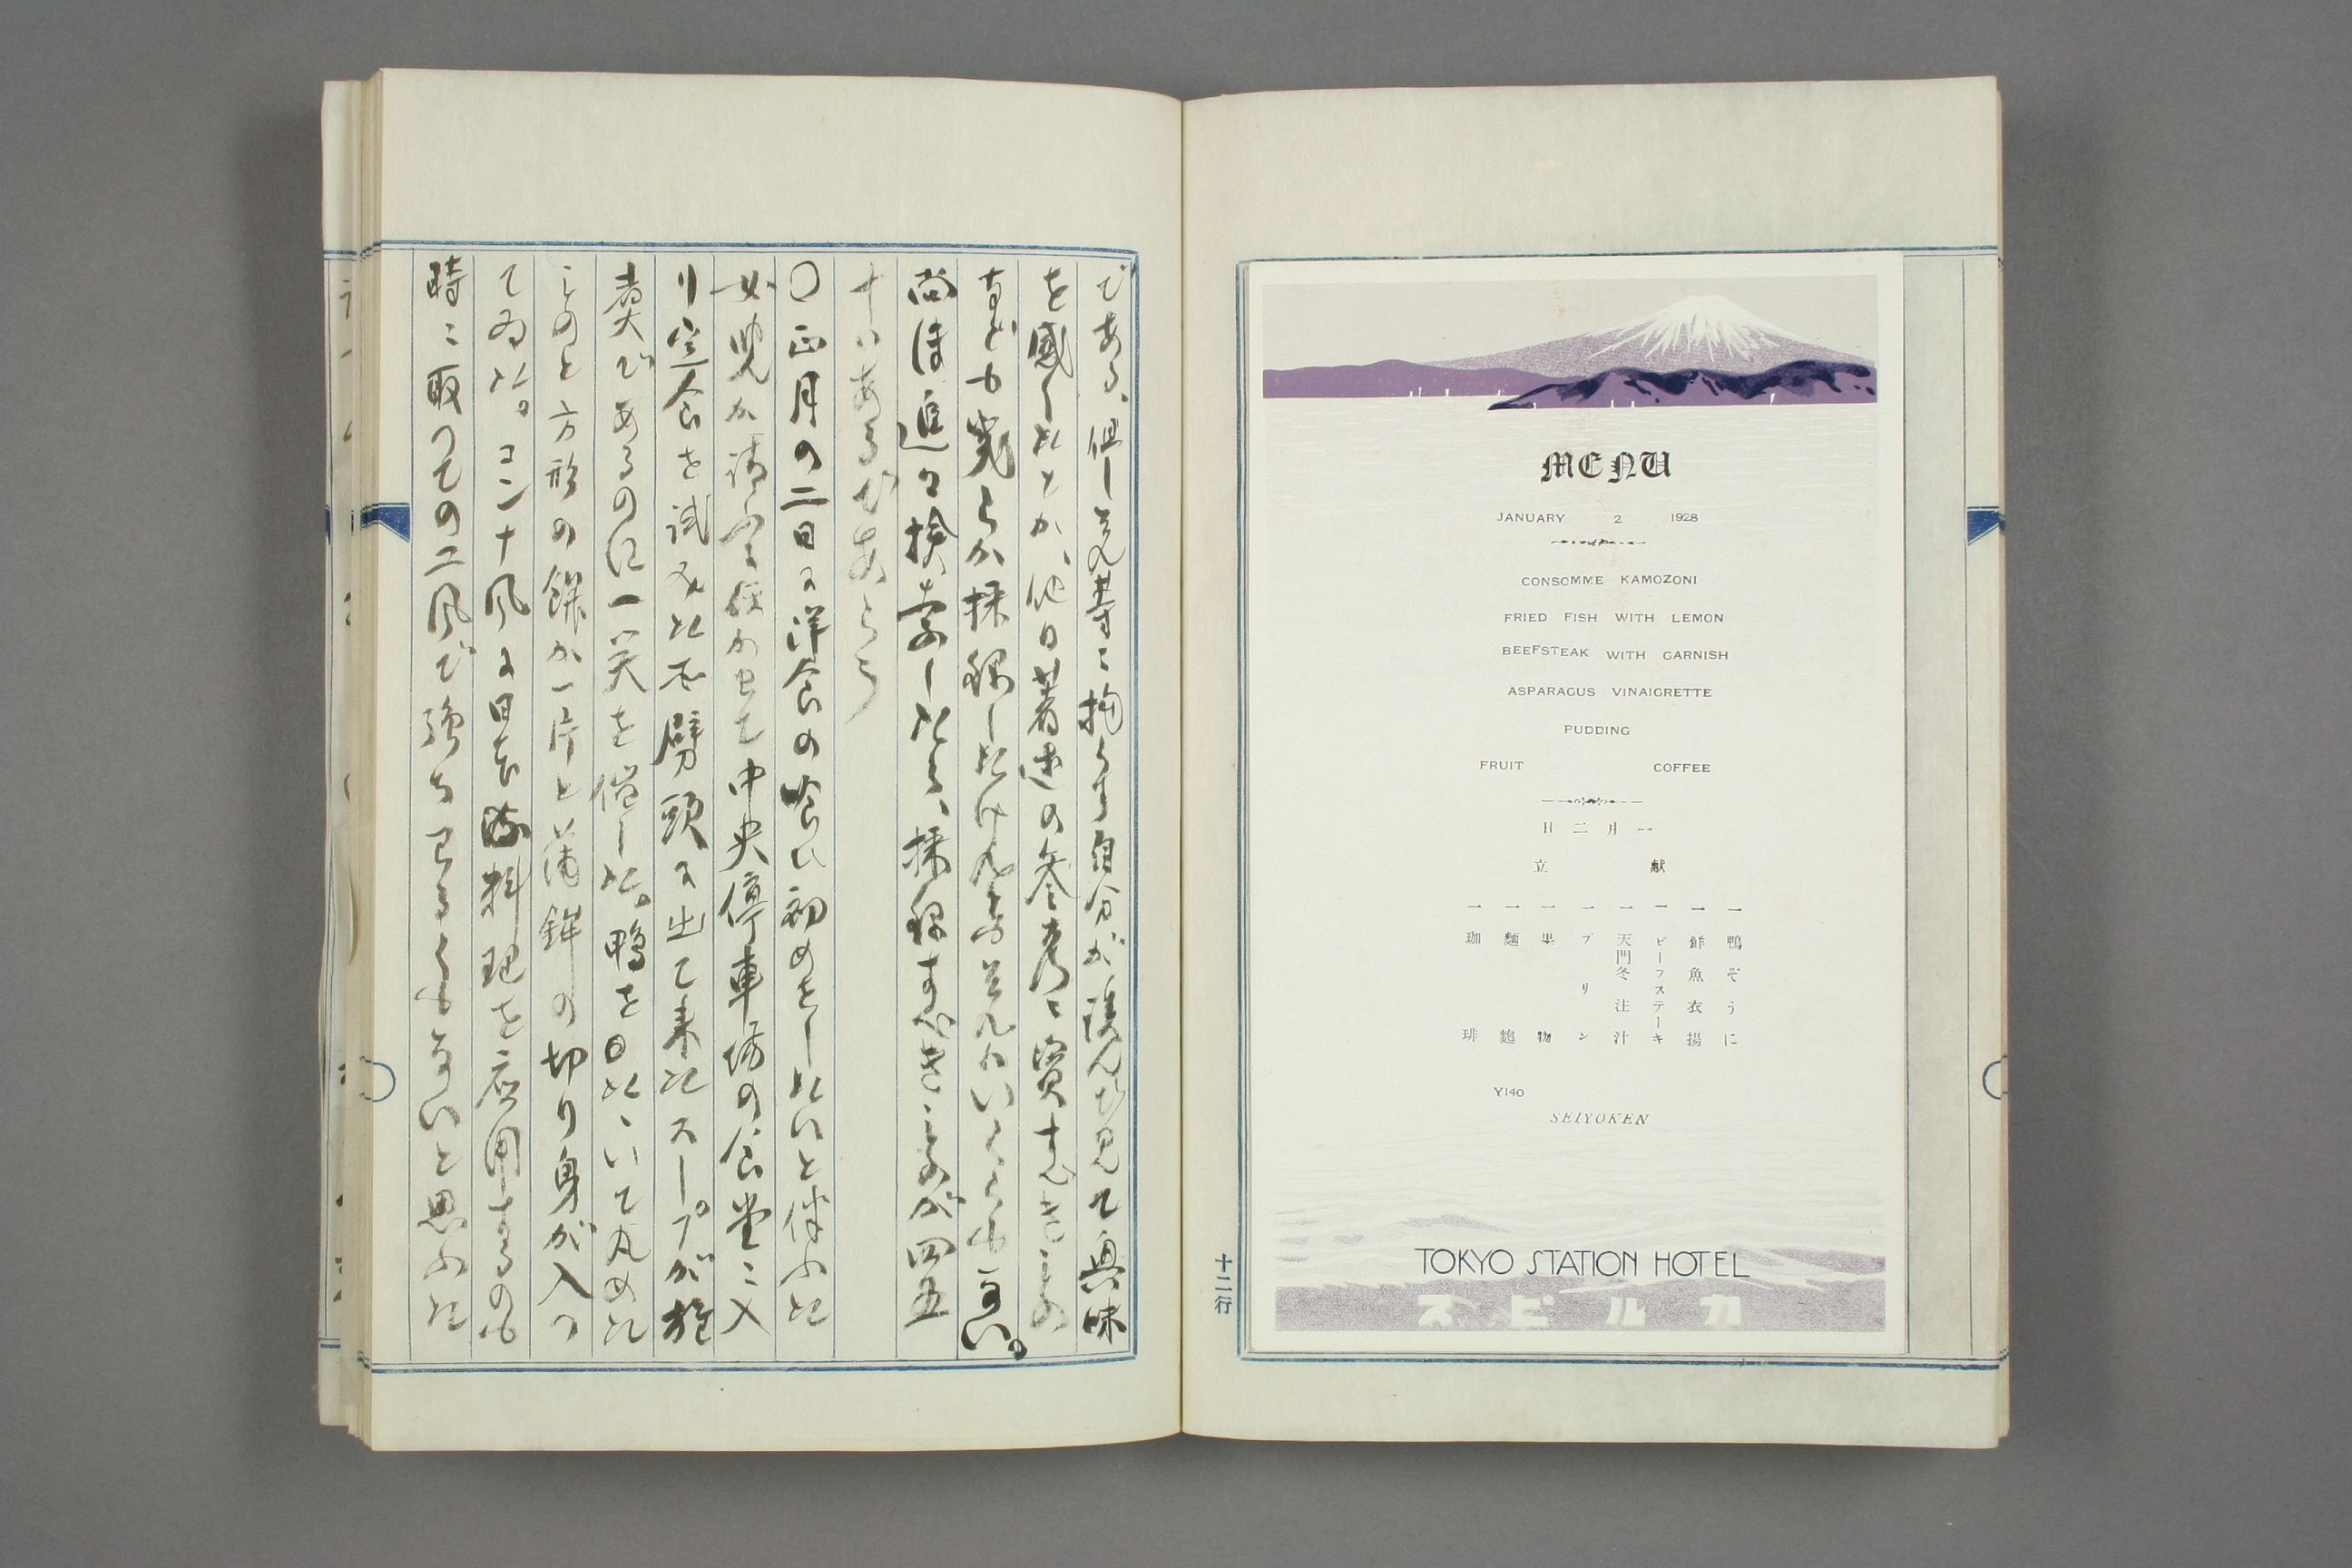 MENU
JANUARY 2 1928
CONSOMME KAMOZONI
FRIED FISH WITH LEMON
BEEFSTEAK WITH GARNISH
ASPARAGUS VINAIGRETTE
PUDDING
FRUIT COFFEE
日二月一
立献
一鴨ぞうに
一鮮魚衣揚
一ビーフステーキ
一天門冬注汁
一プリン
一果物
一麵麭
一珈琲
Y140
SEIYOKEN
TOKYO STATION HOTEL
スピルカ
十二行
である、但し
自分が読んで見て興味
を感じたとか、他日著述の参考に資すべきもの
なども幾らか採録した
尚ほ追々検索したら、採録すべきものが四五
十はあるであらう
〇正月の二日に洋食の喰ひ初めをしたいと伴ふた
女児が請ふ
中央停車場の食堂に入
り定食を試みた
劈頭に出て来たスープが雑
煮であるのに一笑を催した。鴨を
丸めた
ものと方形の餅が一片と蒲鉾の切り身が入つ
てゐた。コンナ風に日本料理を応用するのも
時に取つての工風で
ないと思ふた